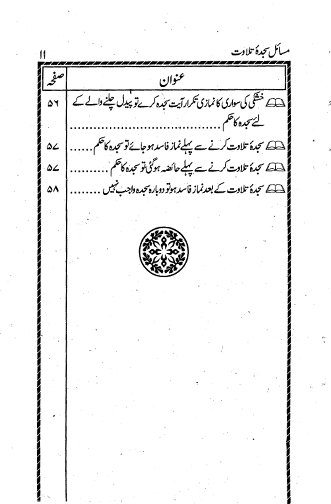 مسائل سجدۂ تلاوت ۱۱
عنوان صفحہ
خشکی کی سواری کا نمازی تکرار آیت سجدہ کرے تو پیدل چلنے والے کے ۵۶
لئے سجدہ کا حکم ........................
سجدۂ تلاوت کرنے سے پہلے نماز فاسد ہو جائے تو سجدہ کا حکم ...... ۵۷
سجدۂ تلاوت کرنے سے پہلے حائضہ ہو گئی تو سجدہ کا حکم ........ ۵۷
سجدۂ تلاوت کے بعد نماز فاسد ہو تو دوبارہ سجدہ واجب نہیں ........ ۵۸